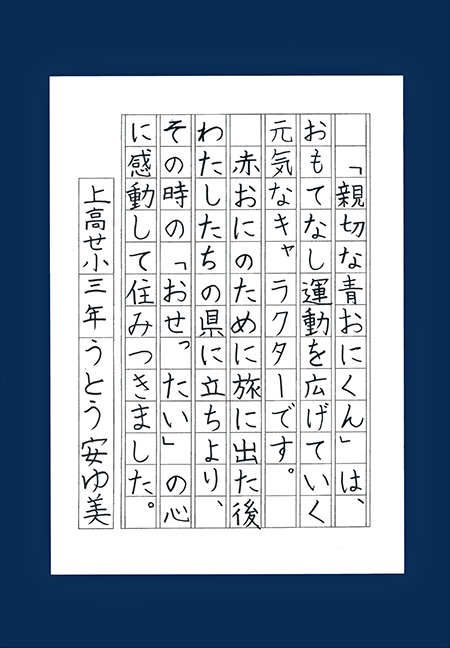 「親切な青おにくん」は、
おもてなし運動を広げていく
元気なキャラクターです。
赤おにのために旅に出た後
わたしたちの県に立ちより、
その時の「おせったい」の心
に感動して住みつきました。
上高せ小三年うとう安ゆ美